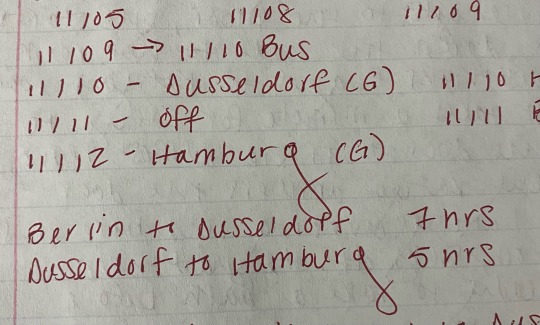 11/05 11/08 11/09
11/09 → 11/10 Bus
11/10 - Dusseldorf (G) 11/10
11/11 - Off 11/11
11/12 - Hamburg (G)
Berlin to Dusseldorf 7 hrs
Dusseldorf to Hamburg 5 hrs